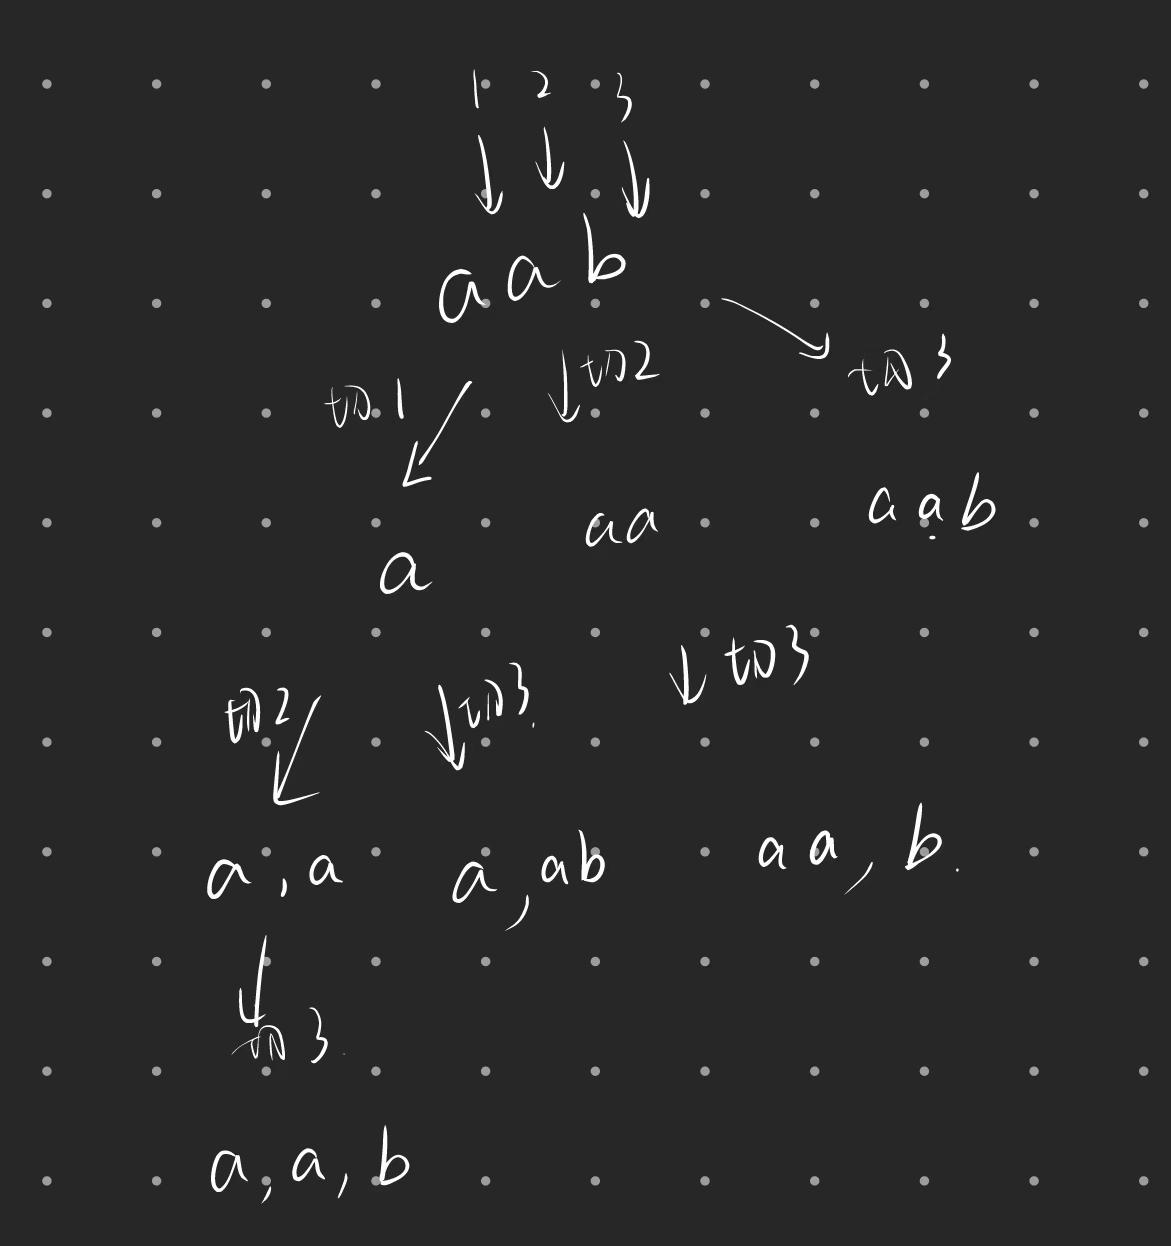 1 2 3
a a b
切1 切2 切3
a aa aab
切2 切3 切3
a,a a,ab aa,b
切3
a,a,b